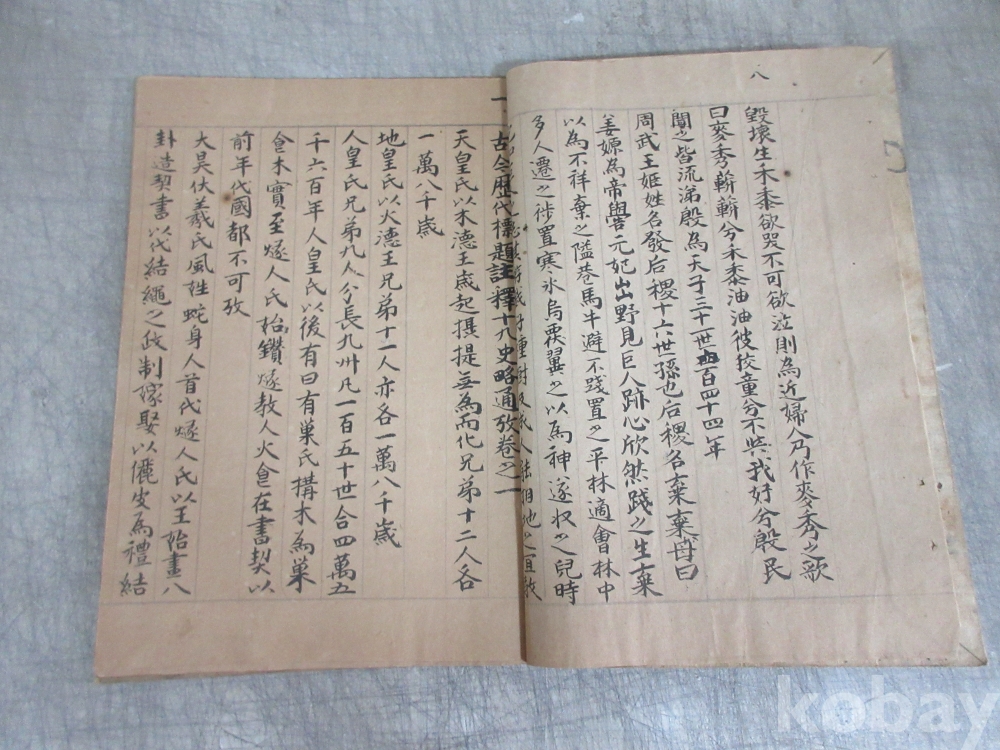 八
毀壞生禾黍欲哭不可欲泣則為近婦人乃作麥秀之歌
曰麥秀蔪蔪兮禾黍油油彼狡童兮不與我好兮殷民
聞之皆流涕殷為天子三十一世百四十四年
周武王姬姓名發后稷十六世孫也后稷名棄棄母曰
姜嫄為帝嚳元妃出野見巨人跡心欣然踐之生棄
以為不祥棄之隘巷馬牛避不踐置之平林適會林中
多人遷之徙置寒氷烏覆翼之以為神遂收之兒時
種樹及成人相地之宜
一
古今歷代標題註釋十九史略通攷卷之一
天皇氏以木德王歲起攝提無為而化兄弟十二人各
一萬八千歲
地皇氏以火德王兄弟十一人亦各一萬八千歲
人皇氏兄弟九人分長九州凡一百五十世合四萬五
千六百年人皇氏以後有曰有巢氏搆木為巢
食木實至燧人氏始鑽燧教人火食在書契以
前年代國都不可攷
大昊伏羲氏風姓蛇身人首代燧人氏以王始畫八
卦造契書以代結繩之政制嫁娶以儷皮為禮結
kobay